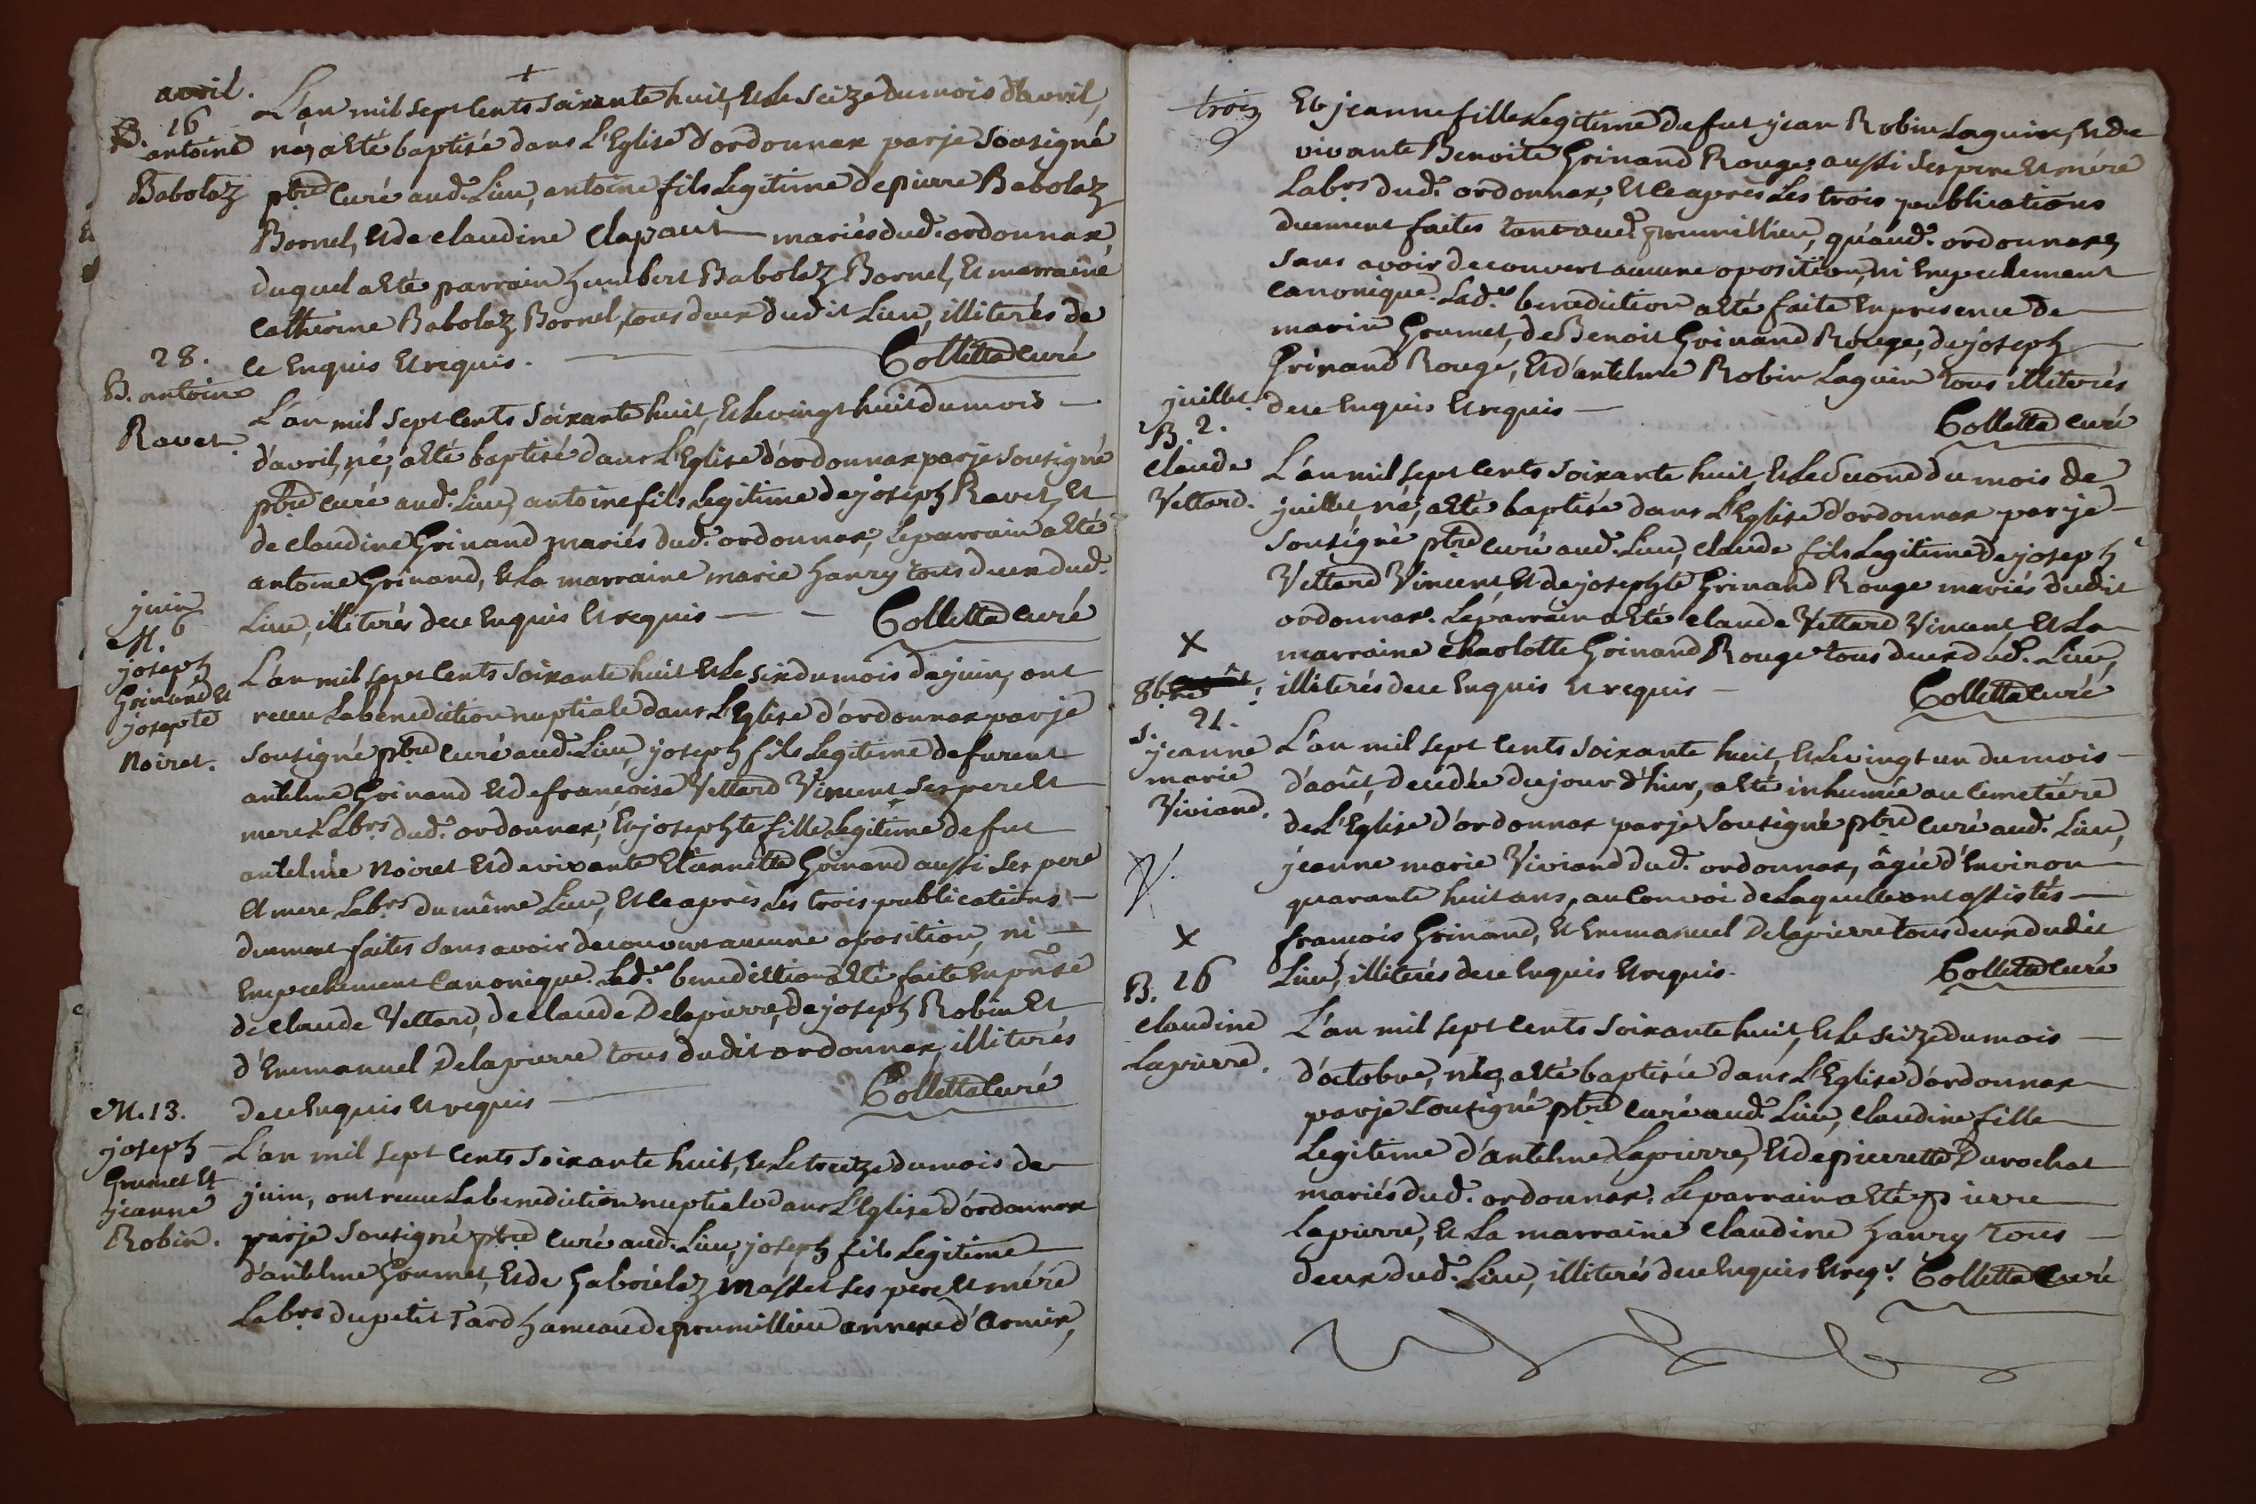 avril.
B. 16
antoine
Babolaz
+
L'an mil sept cents soixante huit, et le seize du mois d'avril,
né, a eté baptisé dans L'Eglise d'ordonnax par je sousigné
ptre curé aud. Lieu, antoine fils Legitime de pierre Babolaz
Bornel, et de claudine Clapaut mariés dud. ordonnax,
duquel a eté parrain humbert Babolaz Bornel, et marraine
catherine Babolaz Bornel, tous deux dudit Lieu, illiterés de
ce enquis et requis. Colletta curé
28.
B. antoine
Ravet.
L'an mil sept cents soixante huit, et le vingt huit du mois
d'avril, né, a eté baptisé dans L'Eglise d'ordonnax par je sousigné
ptre curé aud. Lieu, antoine fils Legitime de joseph Ravet, et
de claudine Grinand mariés dud. ordonnax, Le parrain a eté
antoine Grinand, et la marraine marie hanry tous deux dud.
Lieu, illiterés de ce enquis et requis Colletta curé
juin
M. 6
joseph
Grinand et
josepte
Noiret.
L'an mil sept cents soixante huit et le six du mois de juin, ont
receu la benediction nuptiale dans L'Eglise d'ordonnax par je
sousigné ptre curé aud. Lieu, joseph fils Legitime de furent
antelme Grinand et de francoise Vettard Vincent ses pere et
mere Labrs dud. ordonnax, Et josephte fille Legitime de fut
antelme Noiret et de vivante Etiennette Grinand aussi ses pere
et mere Labrs du même Lieu, et ce après les trois publications
duement faites sans avoir decouvert aucune oposition, ni
empechement canonique. Lade benediction a eté faite en prñse
de claude Vettard, de claude Delapierre, de joseph Robin et
d'Emmanuel Delapierre tous dudit ordonnax, illiterés
de ce enquis et requis Colletta curé
M. 13.
joseph
Grumet et
jeanne
Robin.
L'an mil sept cents soixante huit, et le treitze du mois de
juin, ont receu la benediction nuptiale dans L'Eglise d'ordonnax
par je sousigné ptre curé aud. Lieu, joseph fils Legitime
d'antelme Grumet, et de Gabriélaz Masset ses pere et mére
Labrs du petit Tard hameau de prumillieu annexe d'armix,
trois
Et jeanne fille Legitime de fut jean Robin Laguin, et de
vivante Benoite Grinand Rouge aussi ses pere et mére
Labrs dud. ordonnax, et ce après les trois publications
duement faites tant aud. prumillieu, qu'aud. ordonnax,
sans avoir decouvert aucune oposition, ni empechement
canonique. Lade benediction a eté faite en presence de
marin Grumet, de Benoit Grinand Rouge, de joseph
Grinand Rouge, et d'antelme Robin Laguin tous illiterés
de ce enquis et requis Colletta curé
juillet
B. 2.
claude
Vettard.
L'an mil sept cents soixante huit et le second du mois de
juillet né, a eté baptisé dans L'Eglise d'ordonnax par je
sousigné ptre curé aud. Lieu, claude fils Legitime de joseph
Vettard Vincent, et de josephte Grinand Rouge mariés dudit
ordonnax. Le parrain a eté claude Vettard Vincent, et la
marraine charlotte Grinand Rouge tous deux dud. Lieu,
illiterés de ce enquis et requis Colletta curé
x
8bre
S. 21.
jeanne
marie
Viviand.
L'an mil sept cents soixante huit, et le vingt un du mois
d'août, decedée du jour d'hier, a eté inhumée au cemetiére
de L'Eglise d'ordonnax par je sousigné ptre curé aud. Lieu,
jeanne marie Viviand dud. ordonnax, âgée d'environ
quarante huit ans, au convoi de laquelle ont assistés
francois Grinand, et Emmanuel Delapierre tous deux dudit
Lieu, illiterés de ce enquis et requis. Colletta curé
x
B. 16
claudine
Lapierre.
L'an mil sept cents soixante huit, et le seize du mois
d'octobre, née, a eté baptisée dans L'Eglise d'ordonnax
par je sousigné ptre curé aud. Lieu, claudine fille
Legitime d'antelme Lapierre, et de pierrette Durochat
mariés dud. ordonnax. Le parrain a eté pierre
Lapierre, et la marraine claudine hanry tous
deux dud. Lieu, illiterés de ce enquis et reqs. Colletta curé